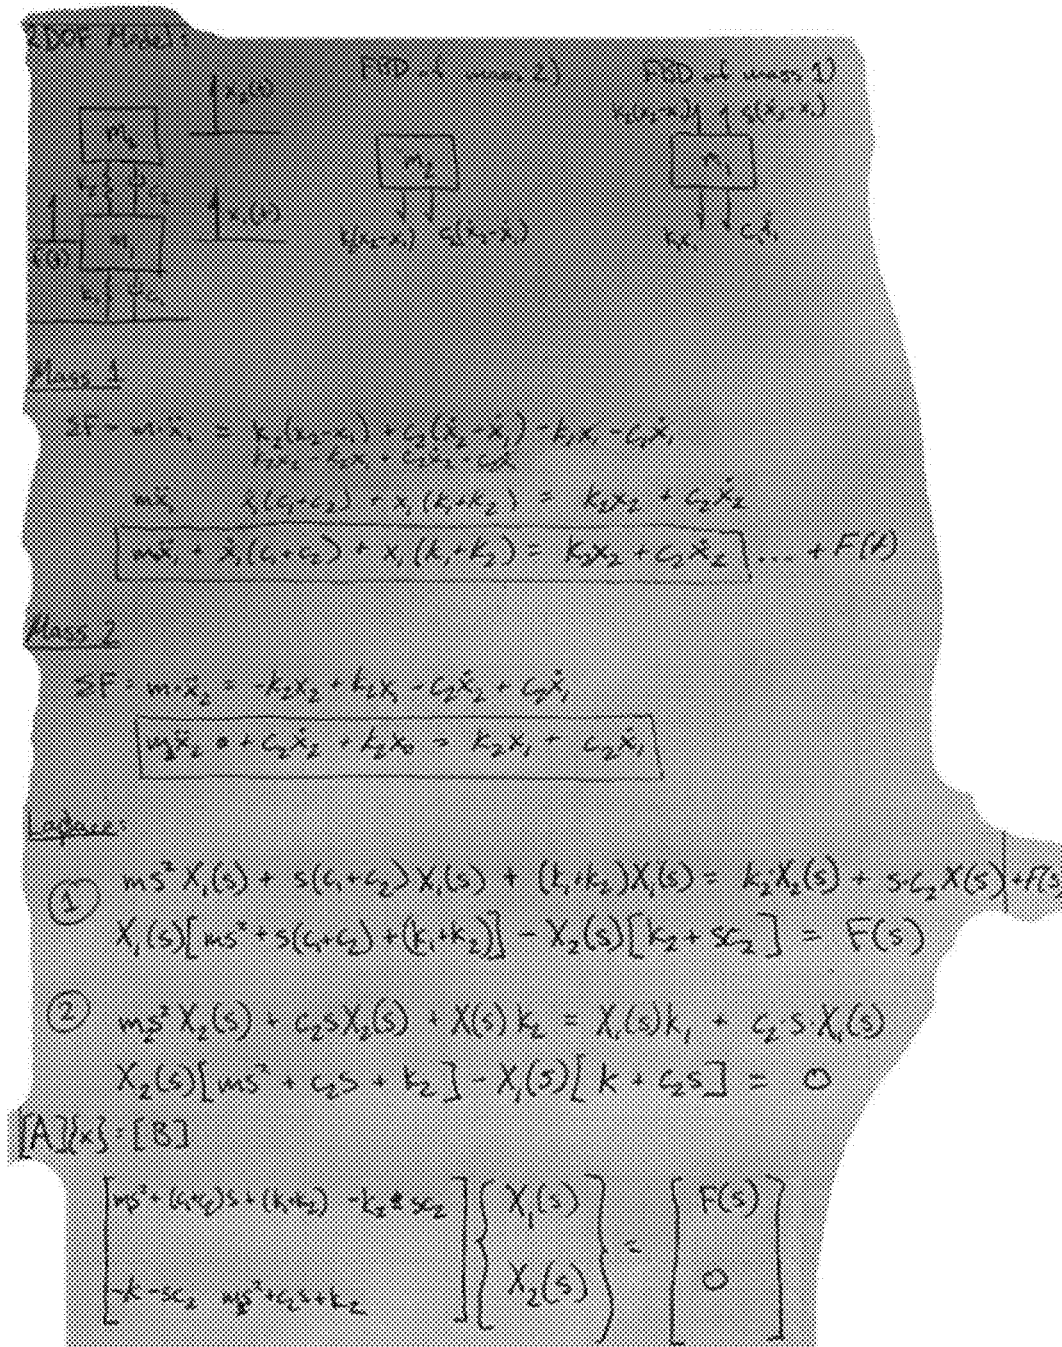 2DOF Model:
FBD of mass 2) FBD of mass 1)
x₂(t) k₂(x₂-x₁) c₂(ẋ₂-ẋ₁)
m₂ m₂ m₁
k₂ c₂
x₁(t) k₂(x₂-x₁) c₂(ẋ₂-ẋ₁) k₁x₁ c₁ẋ₁
m₁
f(t)
k₁ c₁
Mass 1
ΣF = m·ẍ₁ = k₂(x₂-x₁) + c₂(ẋ₂-ẋ₁) - k₁x₁ - c₁ẋ₁
k₂x₂ - k₂x₁ + c₂ẋ₂ - c₂ẋ₁
mẍ₁ ẋ₁(c₁+c₂) + x₁(k₁+k₂) = k₂x₂ + c₂ẋ₂
mẍ₁ + ẋ₁(c₁+c₂) + x₁(k₁+k₂) = k₂x₂ + c₂ẋ₂ ... + F(t)
Mass 2
ΣF = m·ẍ₂ = -k₂x₂ + k₂x₁ - c₂ẋ₂ + c₂ẋ₁
m₂ẍ₂ + c₂ẋ₂ + k₂x₂ = k₂x₁ + c₂ẋ₁
Laplace:
① ms²X₁(s) + s(c₁+c₂)X₁(s) + (k₁+k₂)X₁(s) = k₂X₂(s) + s·c₂X(s) + F(s)
X₁(s)[ms² + s(c₁+c₂) + (k₁+k₂)] - X₂(s)[k₂ + sc₂] = F(s)
② m₂s²X₂(s) + c₂sX₂(s) + X(s)k₂ = X₁(s)k₁ + c₂sX₁(s)
X₂(s)[ms² + c₂s + k₂] - X₁(s)[k + c₂s] = 0
[A]{x} = [B]
[ms² + (c₁+c₂)s + (k₁+k₂) -k₂ ± sc₂] {X₁(s)} = [F(s)]
[-k - sc₂ m₂s² + c₂s + k₂] {X₂(s)} [0]